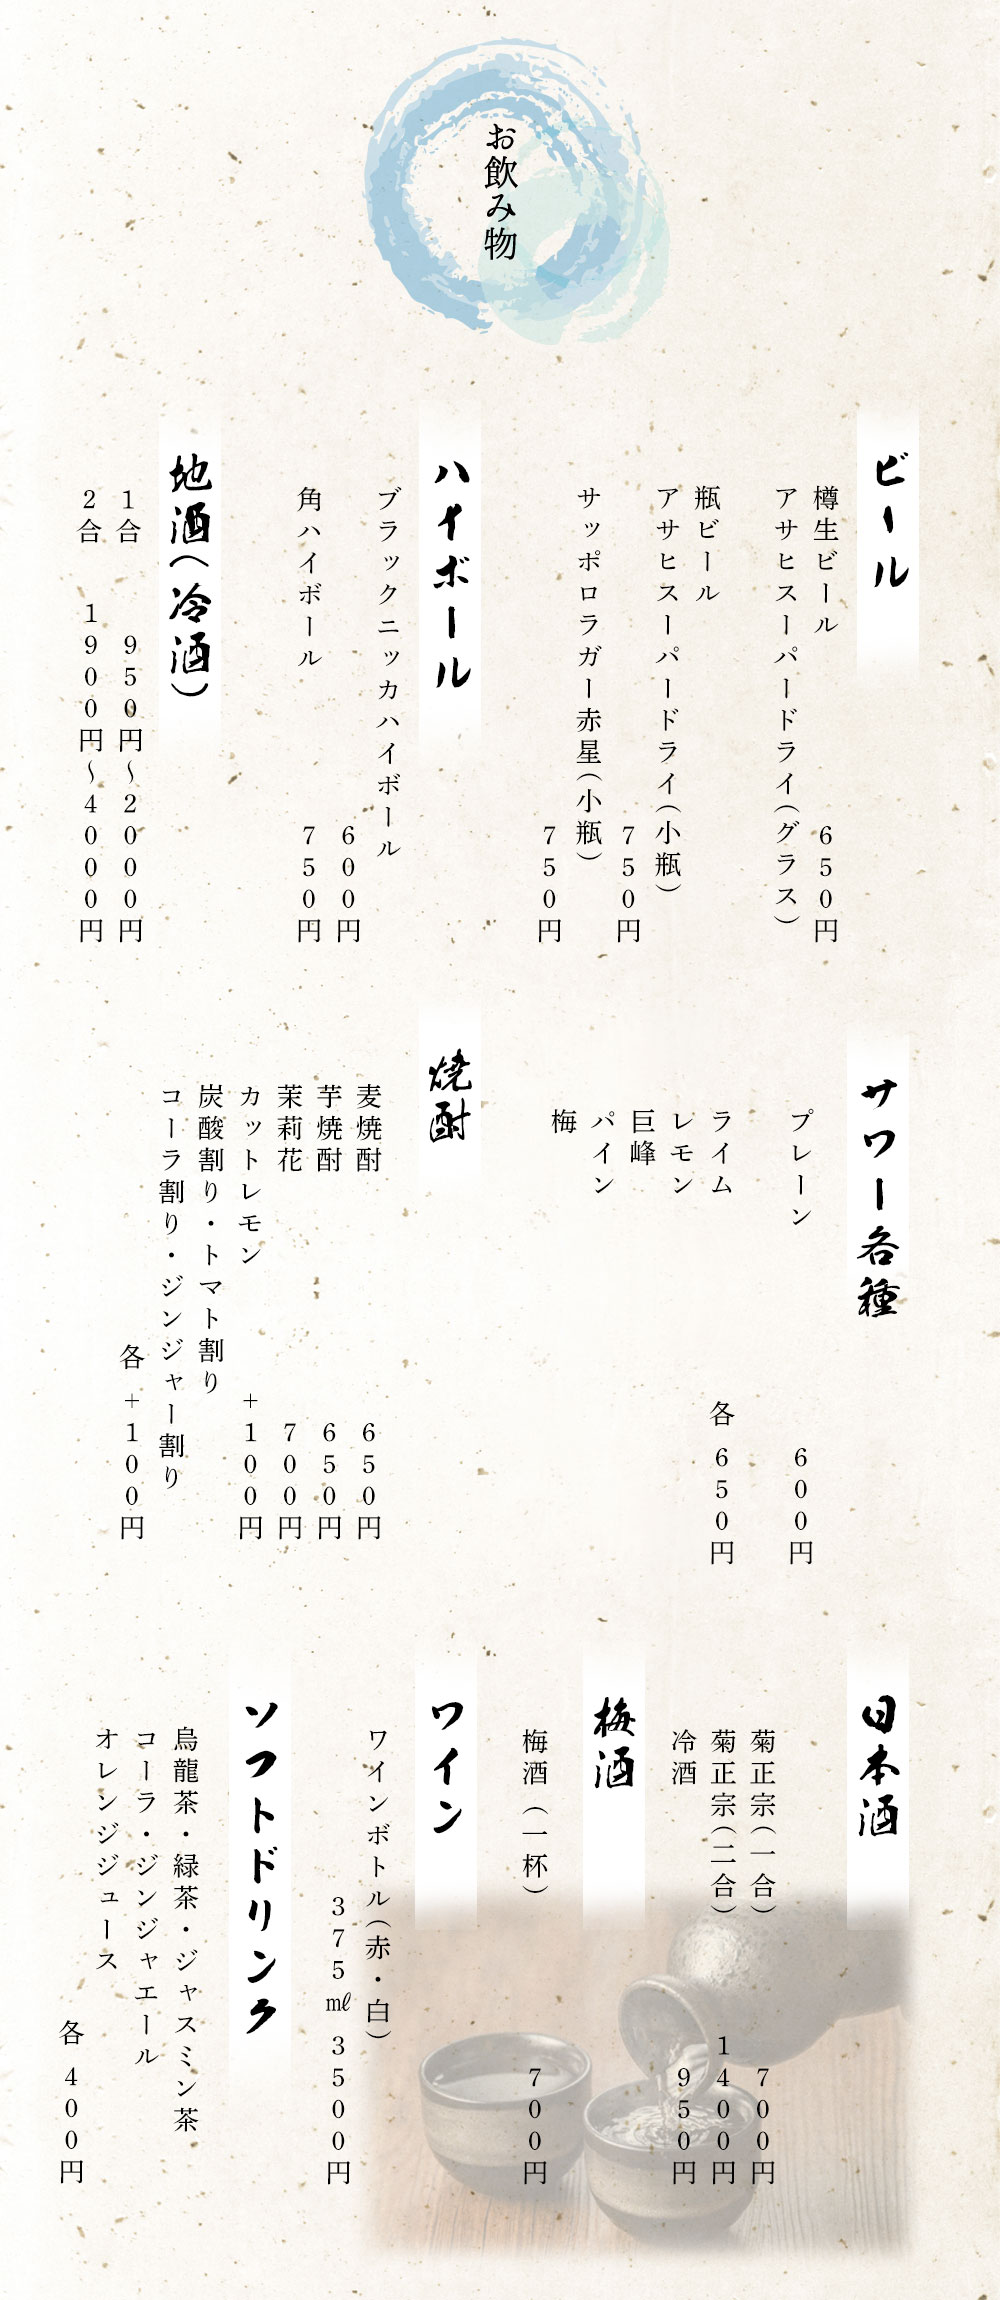 お飲み物
ビール
樽生ビール
アサヒスーパードライ(グラス)
650円
瓶ビール
アサヒスーパードライ(小瓶)
750円
サッポロラガー赤星(小瓶)
750円
ハイボール
ブラックニッカハイボール
600円
角ハイボール
750円
地酒(冷酒)
1合 950円〜2000円
2合 1900円〜4000円
サワー各種
プレーン 600円
ライム
レモン
巨峰
パイン
梅
各 650円
焼酎
麦焼酎 650円
芋焼酎 650円
茉莉花 700円
カットレモン +100円
炭酸割り・トマト割り
コーラ割り・ジンジャー割り
各 +100円
日本酒
菊正宗(一合) 700円
菊正宗(二合) 1400円
冷酒 950円
梅酒
梅酒(一杯) 700円
ワイン
ワインボトル(赤・白)
375㎖ 3500円
ソフトドリンク
烏龍茶・緑茶・ジャスミン茶
コーラ・ジンジャエール
オレンジジュース
各 400円